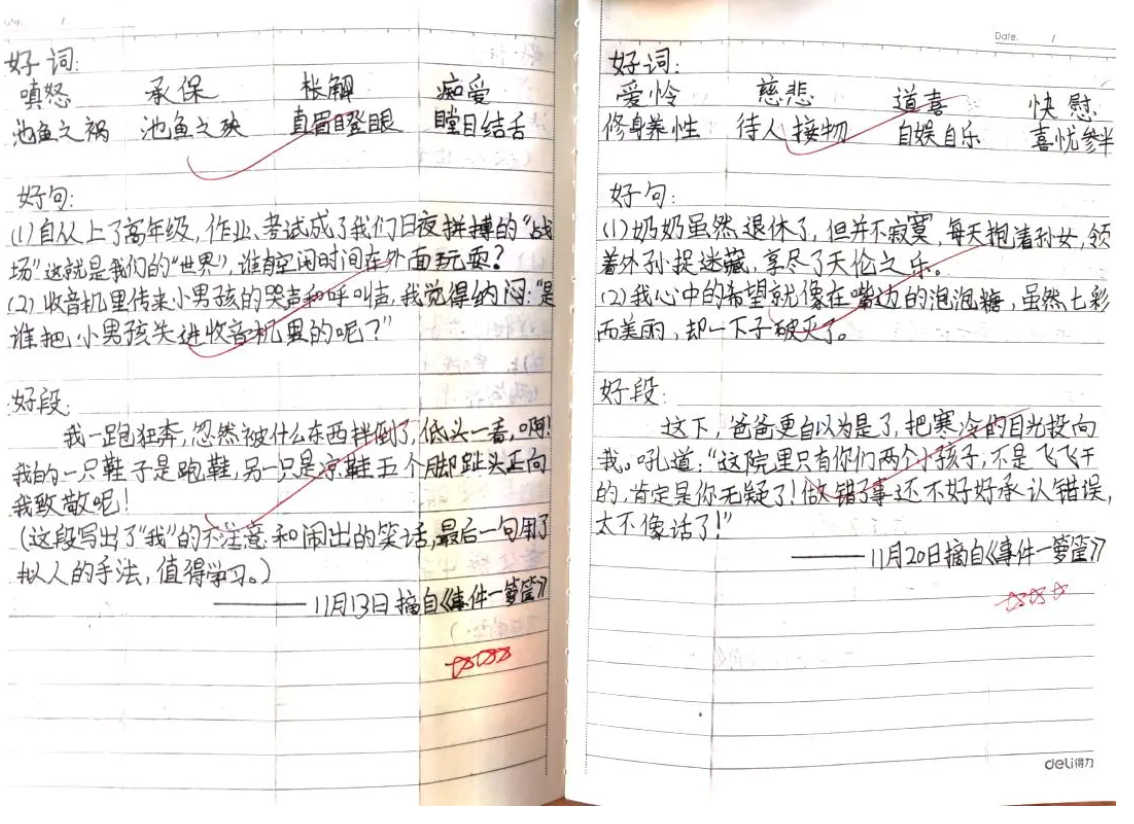 好词:
嗔怒 承保 怅解 痴爱
池鱼之祸 池鱼之殃 直眉瞪眼 瞠目结舌
好句:
(1)自从上了高年级,作业、考试成了我们日夜拼搏的“战
场”这就是我们的“世界”,谁有空闲时间在外面玩耍?
(2)收音机里传来小男孩的哭声和呼叫声,我觉得纳闷:“是
谁把小男孩失进收音机里的呢?”
好段:
我一跑狂奔,忽然被什么东西拌倒了,低头一看,啊!
我的一只鞋子是跑鞋,另一只是凉鞋五个脚趾头正向
我致敬呢!
(这段写出了“我”的不注意和闹出的笑话,最后一句用了
拟人的手法,值得学习。)
——11月13日摘自《事件一箩筐》
Date. /
好词:
爱怜 慈悲 道喜 快慰
修身养性 待人接物 自娱自乐 喜忧参半
好句:
(1)奶奶虽然退休了,但并不寂寞,每天抱着孙女,领
着外孙捉迷藏,享尽了天伦之乐。
(2)我心中的希望就像在嘴边的泡泡糖,虽然七彩
而美丽,却一下子破灭了。
好段:
这下,爸爸更自以为是了,把寒冷的目光投向
我。吼道:“这院里只有你们两个小孩子,不是飞飞干
的,肯定是你无疑了!做错了事还不好好承认错误,
太不像话了!”
——11月20日摘自《事件一箩筐》
deli得力